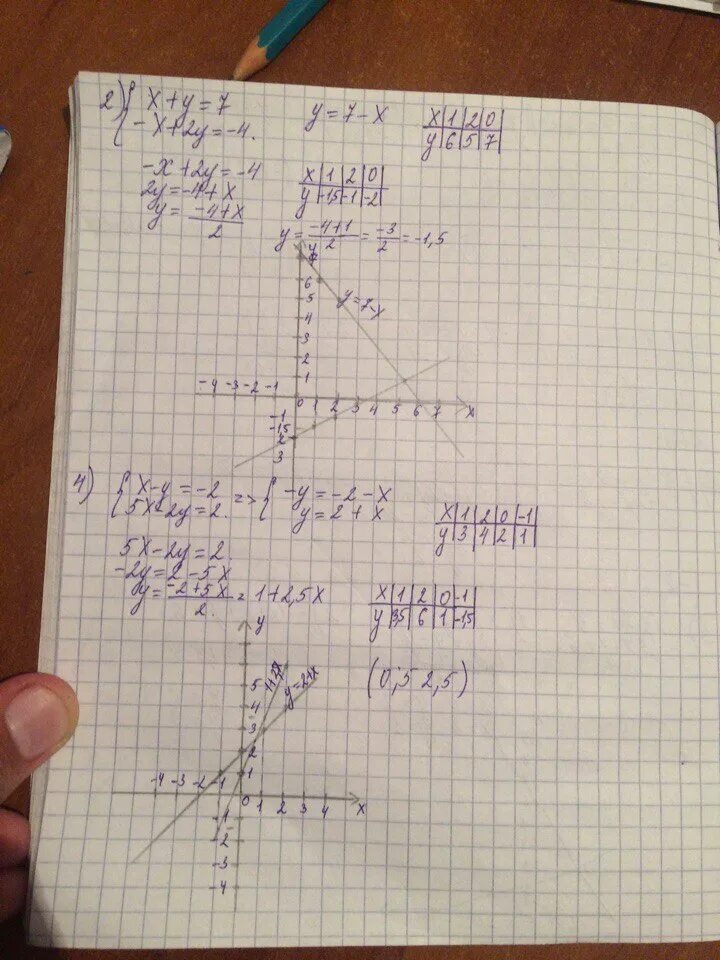 2) { x + y = 7
-x + 2y = -4.
y = 7 - x
x | 1 | 2 | 0
y | 6 | 5 | 7
-x + 2y = -4
2y = -4 + x
y = (-4 + x)/2
x | 1 | 2 | 0
y | -1,5 | -1 | -2
y = (-4 + 1)/2 = -3/2 = -1,5
y
7
6
5
y = 7 - x
4
3
2
1
-4 -3 -2 -1
0 1 2 3 4 5 6 7 x
-1
-1,5
2
3
4) { x - y = -2
5x - 2y = 2.
=> { -y = -2 - x
y = 2 + x
x | 1 | 2 | 0 | -1
y | 3 | 4 | 2 | 1
5x - 2y = 2.
-2y = 2 - 5x
y = (-2 + 5x)/2. = 1 + 2,5x
x | 1 | 2 | 0 | -1
y | 3,5 | 6 | 1 | -1,5
y
(0,5 2,5)
5
y = 2 + x
4
3
2
1
-4 -3 -2 -1
0 1 2 3 4 x
-1
-2
-3
-4